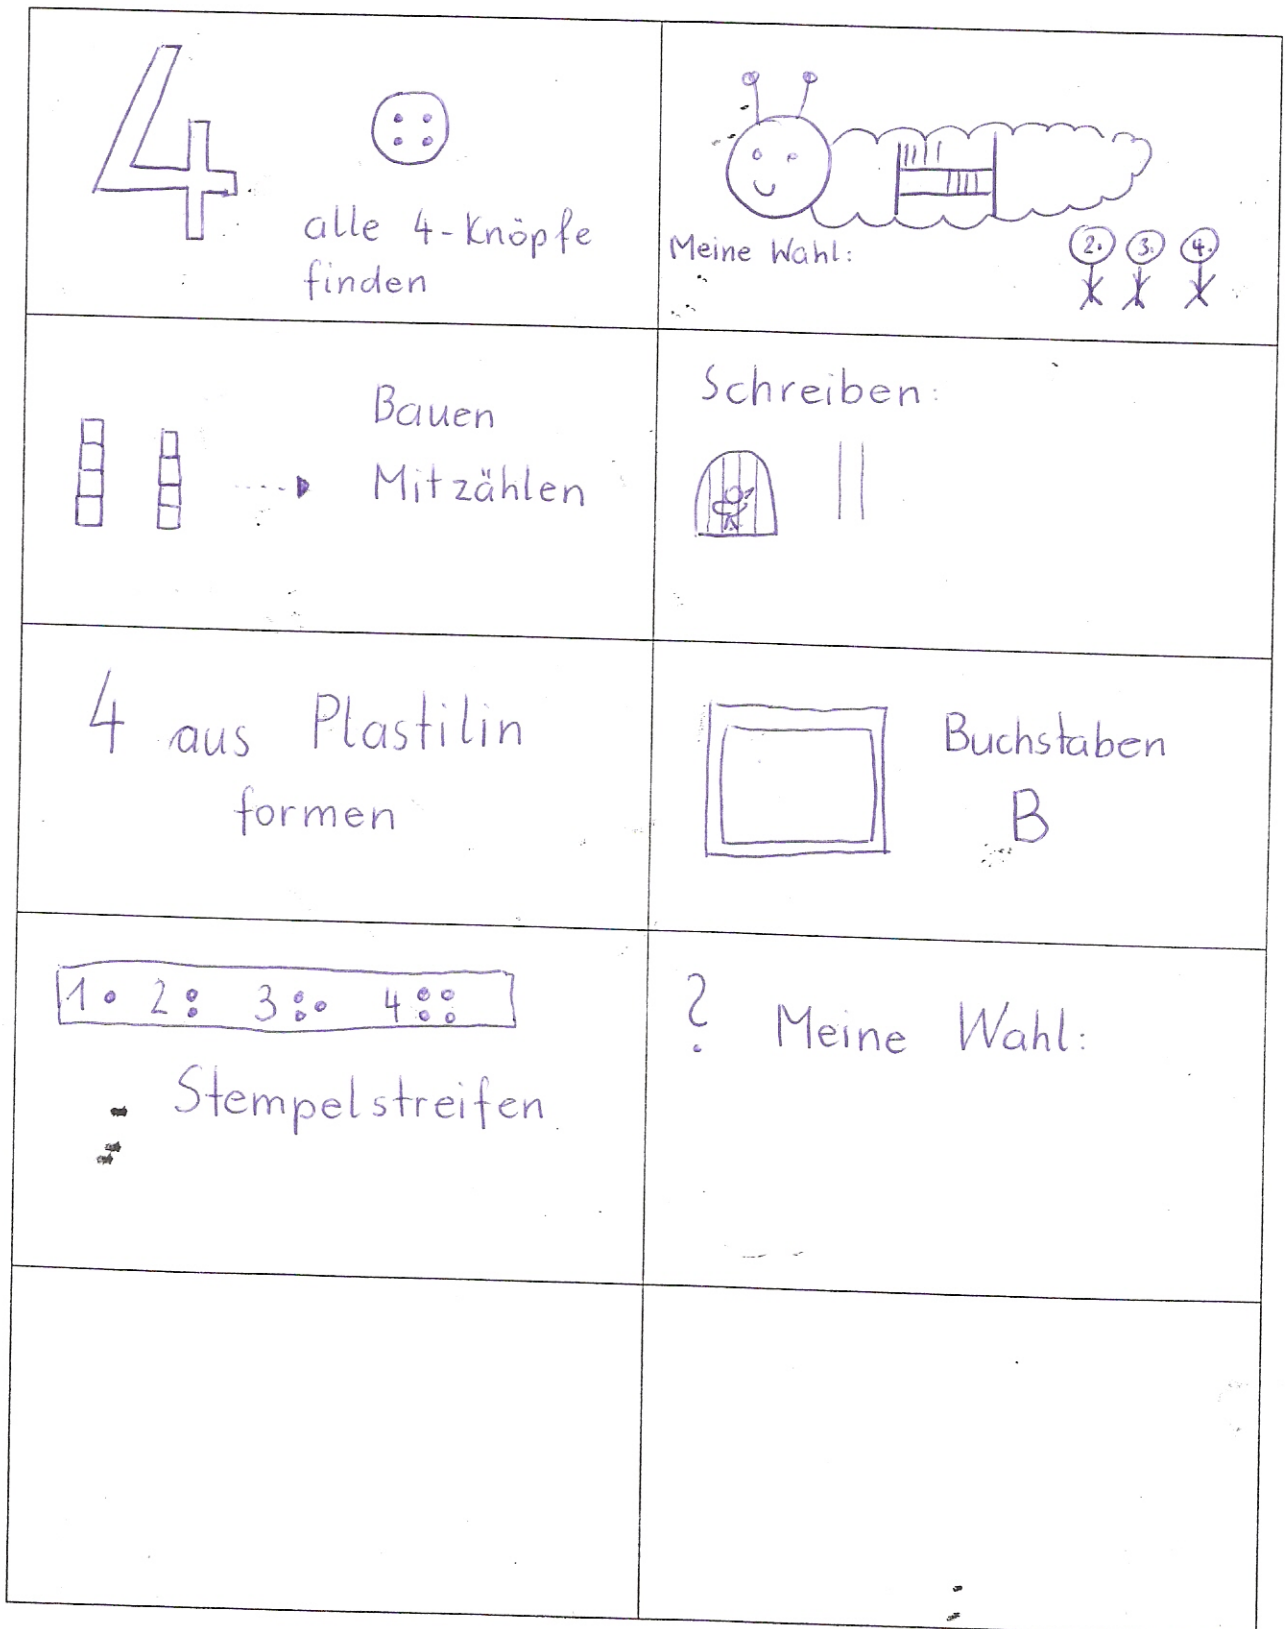 4
alle 4-Knöpfe
finden
Meine Wahl:
2. 3. 4.
Bauen
Mitzählen
Schreiben:
4 aus Plastilin
formen
Buchstaben
B
1 2 3 4
Stempelstreifen
? Meine Wahl: